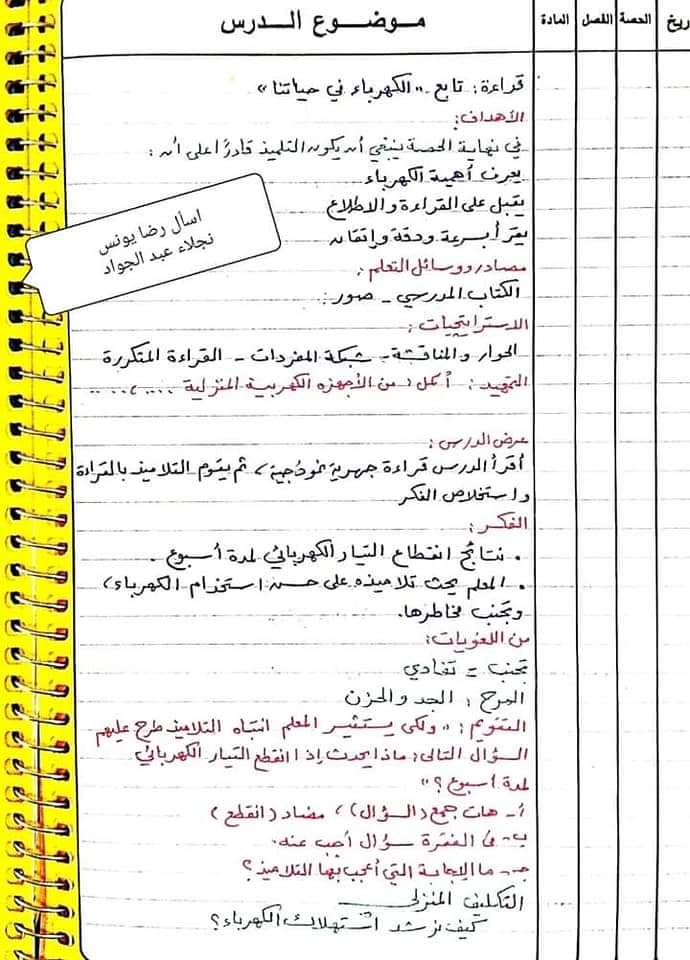 ريخ الحصة الفصل المادة موضوع الدرس
قراءة: تابع "الكهرباء في حياتنا"
الأهداف:
في نهاية الحصة ينبغي أن يكون التلميذ قادرًا على أن:
يعرف أهمية الكهرباء
يقبل على القراءة والاطلاع
يقرأ بسرعة ودقة وإتقان
اسأل رضا يونس
نجلاء عبد الجواد
مصادر ووسائل التعلم:
الكتاب المدرسي - صور:
الاستراتيجيات:
الحوار والمناقشة - شبكة المفردات - القراءة المتكررة
التمهيد: أكمل: من الأجهزه الكهربية المنزلية ....،....
عرض الدرس:
أقرأ الدرس قراءة جهرية نموذجية، ثم يقوم التلاميذ بالقراءة
واستخلاص الفكر
الفكر:
• نتائج انقطاع التيار الكهربائي لمدة أسبوع.
• المعلم يحث تلاميذه على حسن استخدام الكهرباء،
وتجنب مخاطرها.
من اللغويات:
تجنب = تفادي
المرح: الجد والحزن
التقويم: "ولكى يستثير المعلم انتباه التلاميذ طرح عليهم
السؤال التالى: ماذا يحدث إذا انقطع التيار الكهربائي
لمدة أسبوع؟"
أ- هات جمع (السؤال)، مضاد (انقطع)
ب- فى الفقرة سؤال أجب عنه.
جـ- ما الإجابة التي أعجب بها التلاميذ؟
التكليف المنزلى
كيف نرشد استهلاك الكهرباء؟